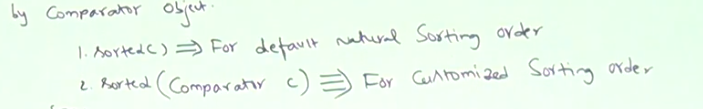 by Comparator Object.
1. sorted() ⇒ For default natural Sorting order
2. sorted (Comparator c) ⇒ For Customized Sorting order